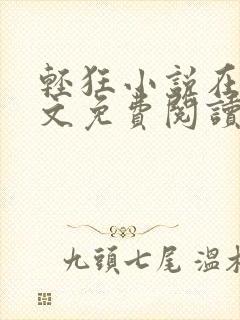 輕狂小說在
文免費閱讀
九頭七尾 溫木